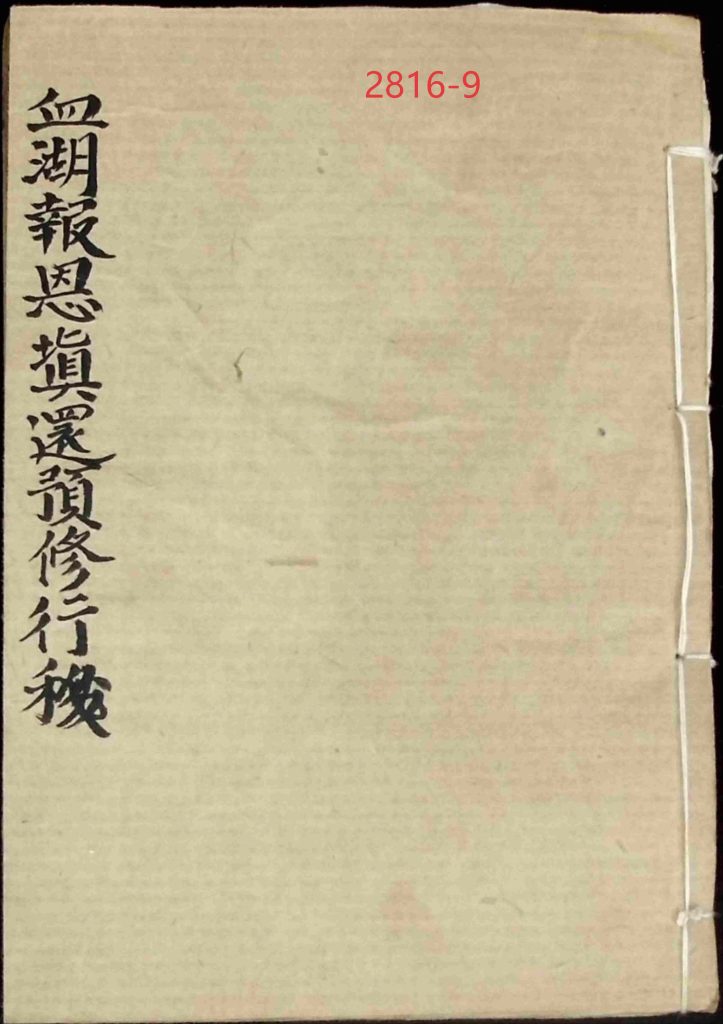 2816-9
血湖報恩塡還預修行移